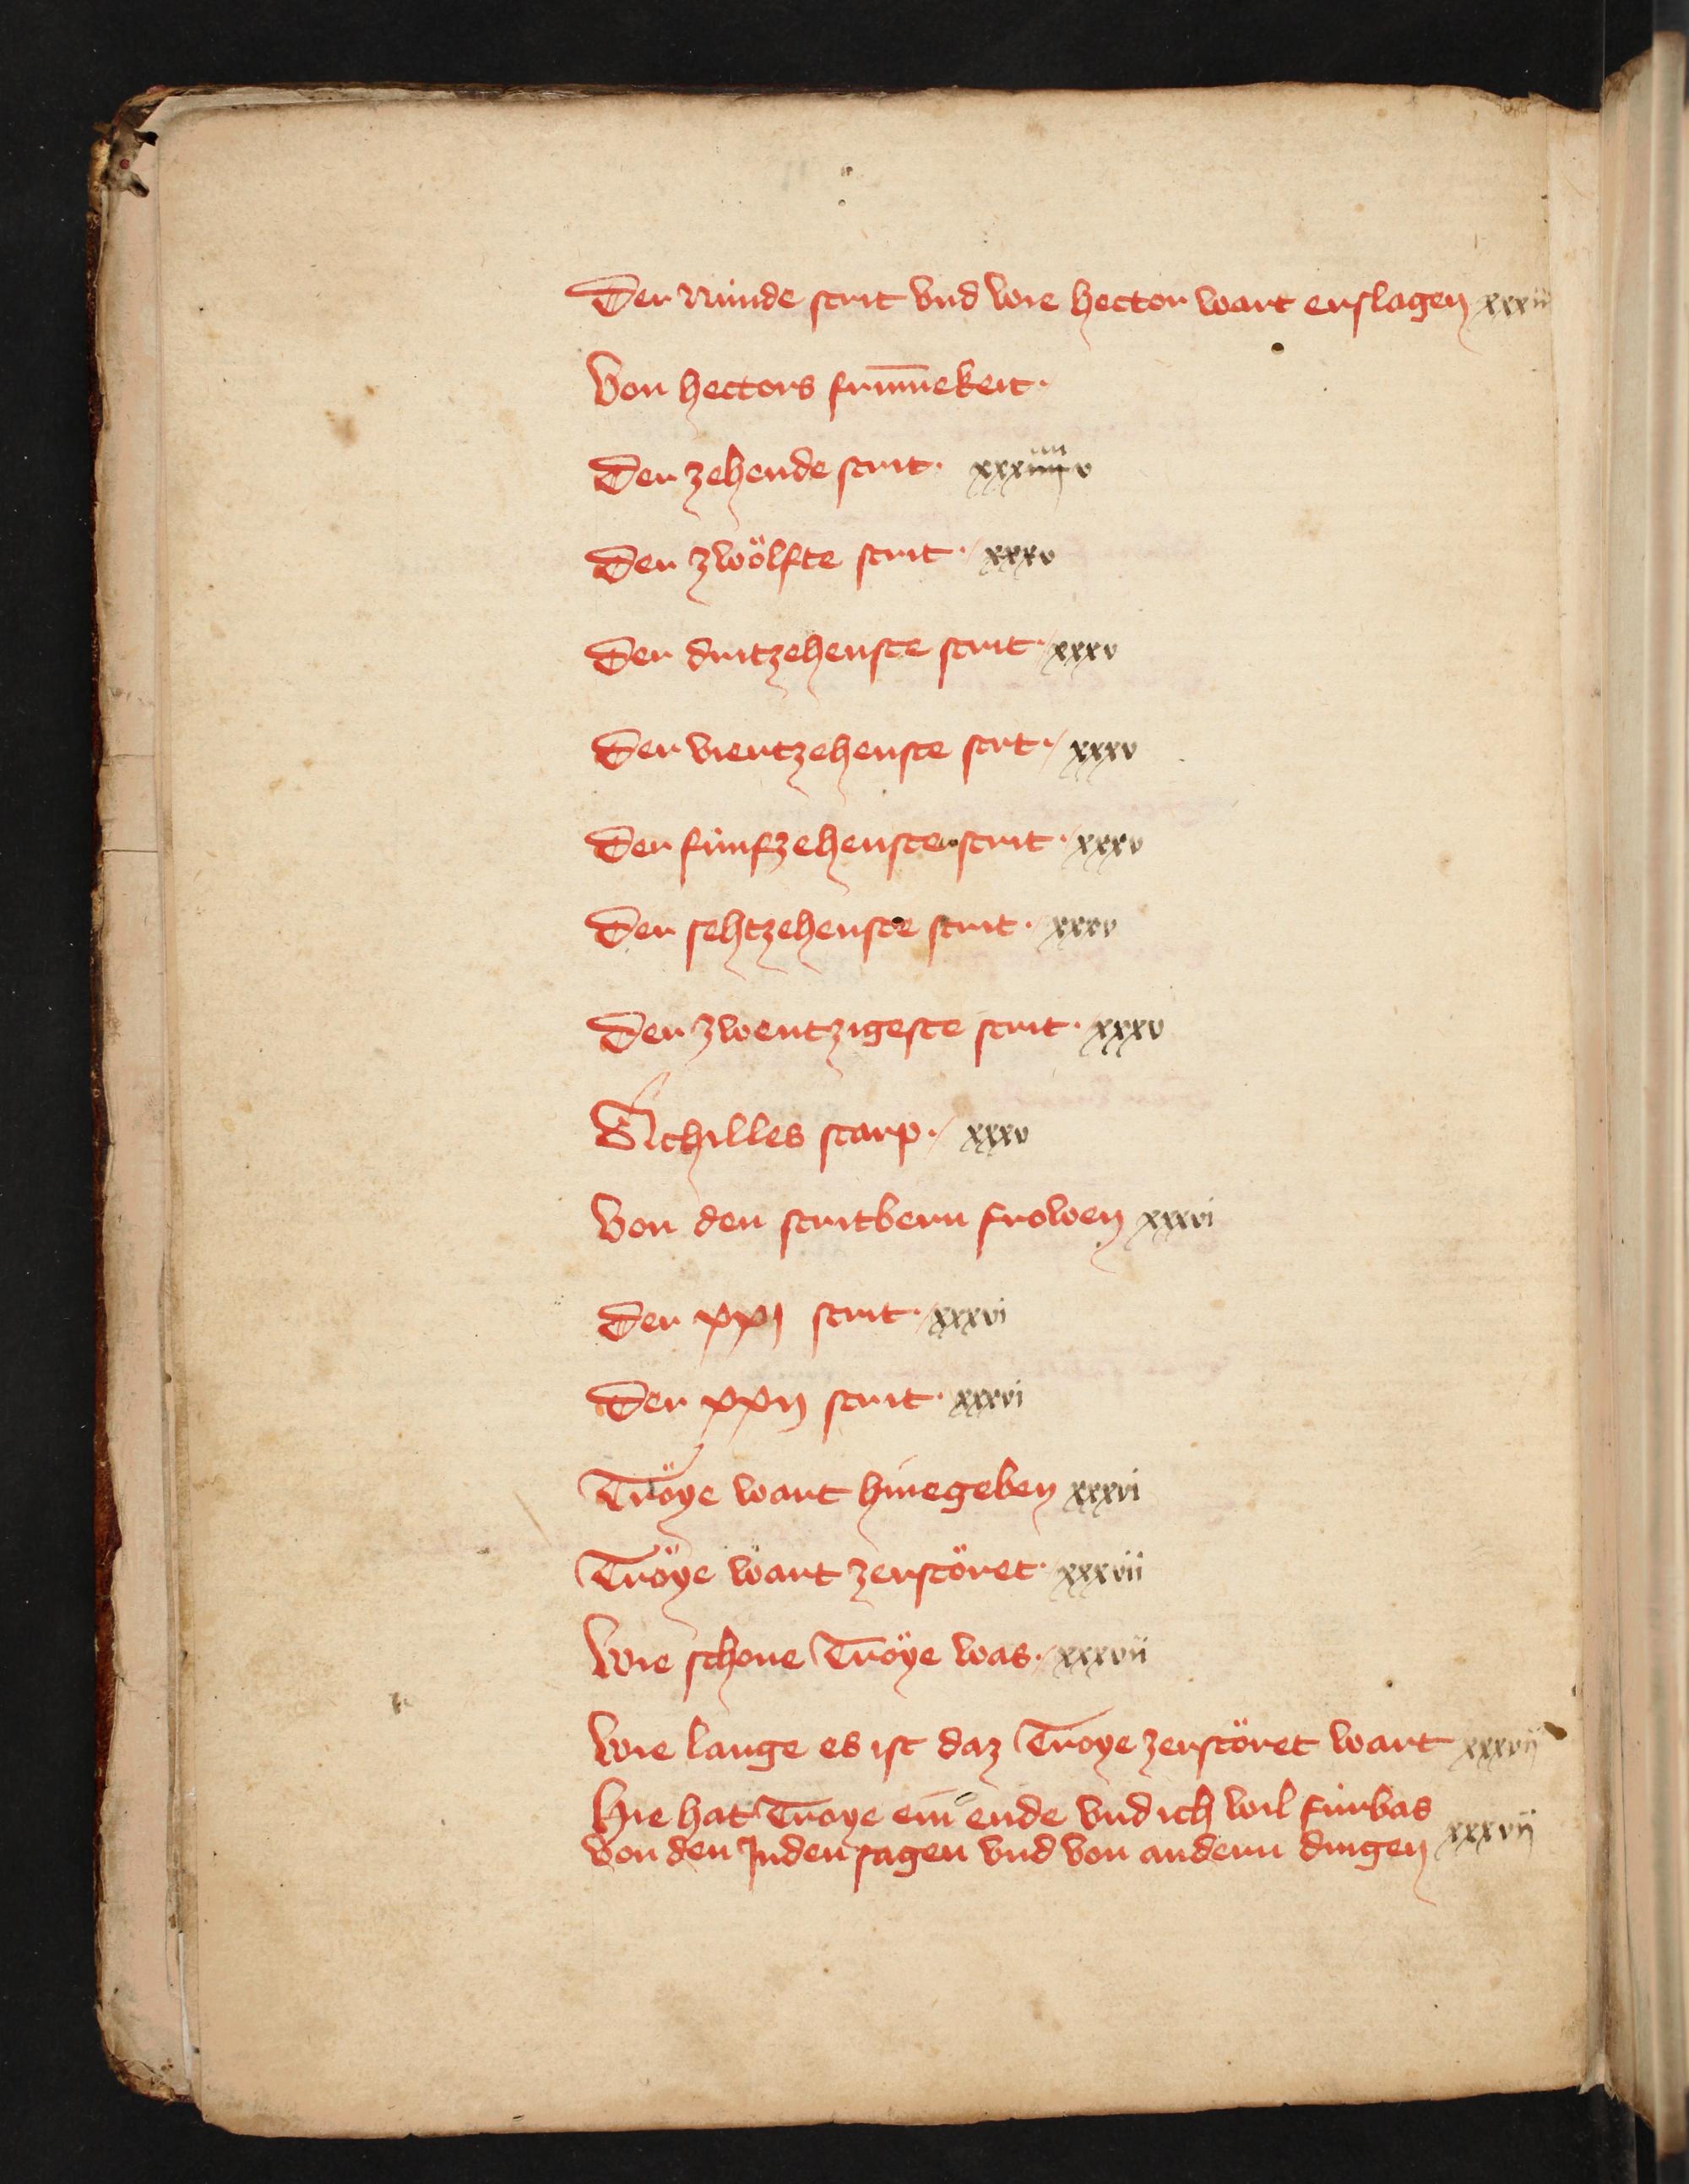 Der Núnde strit vnd wie hector wart erslagen xxxii
Von hectors frúmekeit·
Der zehende strit·
Der zwölfte strit· xxxv
Der dritzehenste strit· xxxv
Der viertzehenste strt· xxxv
Der fúnfzehenste strit· xxxv
Der sehtzehenste strit· xxxv
Der zwentzigeste strit· xxxv
Achilles starp· xxxv
Von den stritbern frowen xxxvi
Der xxj strit· xxxvi
Der xxij strit· xxxvi
Tröye wart hinegeben xxxvi
Tröye wart zerstöret· xxxvii
Wie schone Tröye was· xxxvii
Wie lange es ist daz Troye zerstöret wart xxxvij
Hie hat Troye ein ende vnd ich wil fúrbas
von den Juden sagen vnd von andern dingen xxxvij